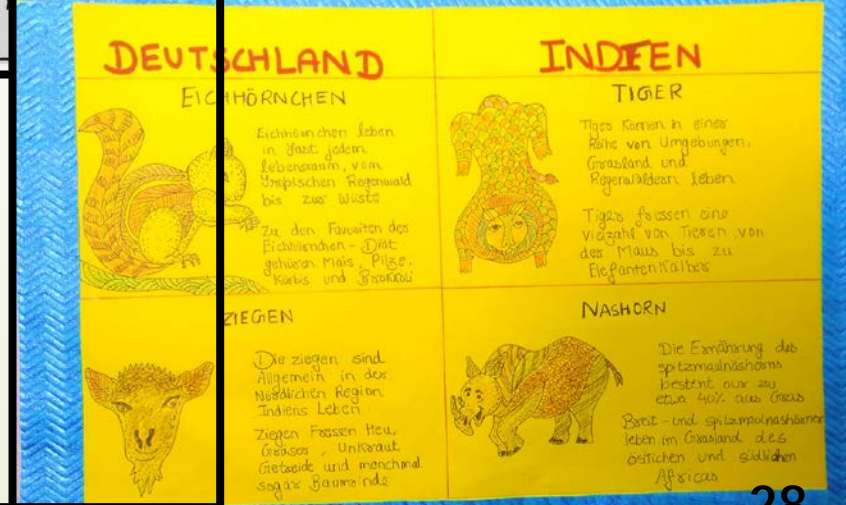 DEUTSCHLAND
EICHHÖRNCHEN
Eichhörnchen leben
in fast jedem
lebensraum, vom
tropischen Regenwald
bis zur Wüste
Zu den Favoriten der
Eichhörnchen-Diät
gehören Mais, Pilze,
Kürbis und Brokkoli
ZIEGEN
Die ziegen sind
Allgemein in der
Nördlichen Region
Indiens Leben
Ziegen Fressen Heu,
Gräser, Unkraut
Getreide und manchmal
sogar Baumrinde
INDIEN
TIGER
Tiger Können in einer
Reihe von Umgebungen,
Grasland und
Regenwäldern leben
Tiger fressen eine
vielzahl von Tieren, von
der Maus bis zu
Elefantenkälber
NASHORN
Die Ernährung des
spitzmaulnashorns
bestent nur zu
etwa 40% aus Gras
Breit-und spitzmaulnashörner
leben im Grasland des
östlichen und südlichen
Africas
28